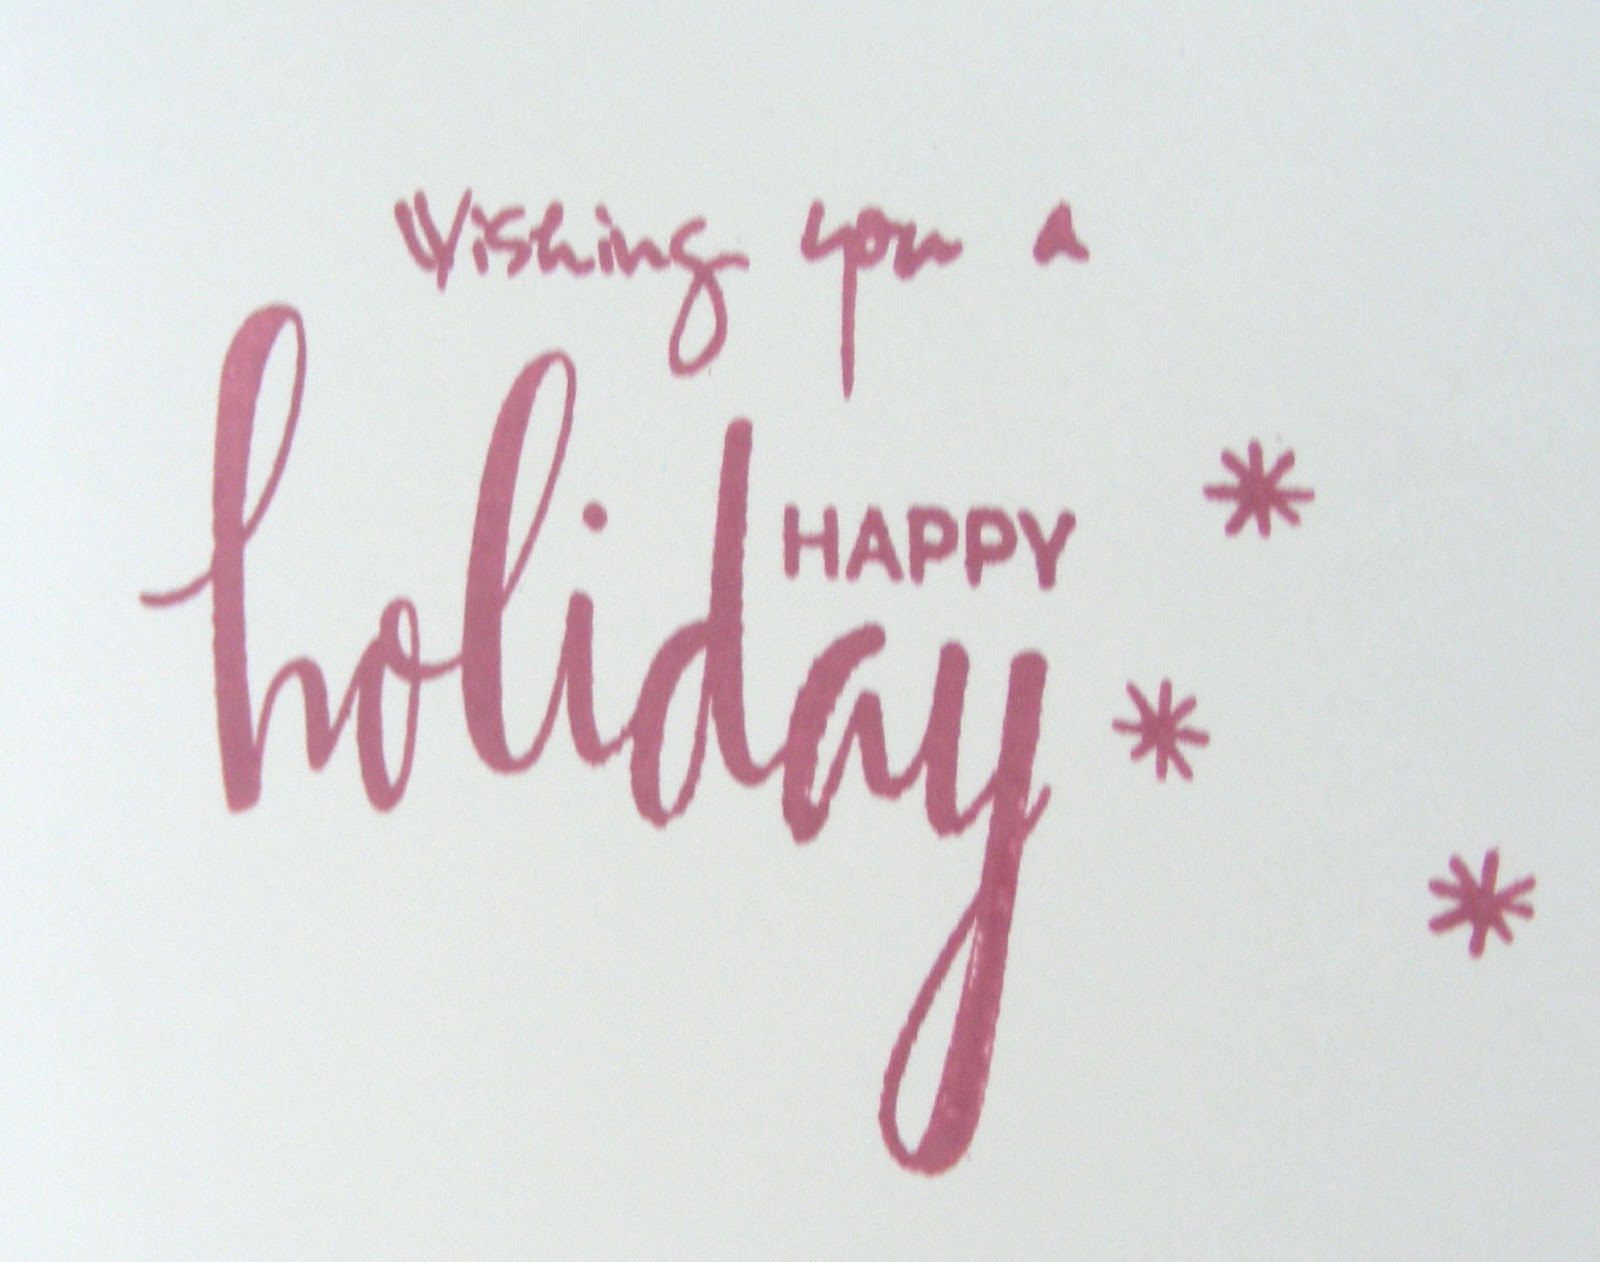 Wishing you a
HAPPY
holiday